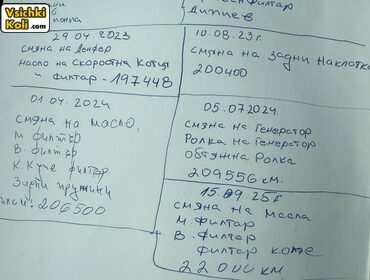 Vsichki
Koli.com
филтар
29.04.2023
смяна на Демфер
масло на скоростна Кутия
и филтар - 197448
10.08.23г.
смяна на задни накладки
200400
01.04.2024
смяна на масло,
М. филтър
В. филтър
К. Купе филтър
Задни пружини
206500
05.07.2024г.
смяна на Генератор
Ролка на Генератор
обтяжна Ролка
209556 км.
15.09.25г
смяна на масла
М. филтар
В. филтар
филтар
22 000 км